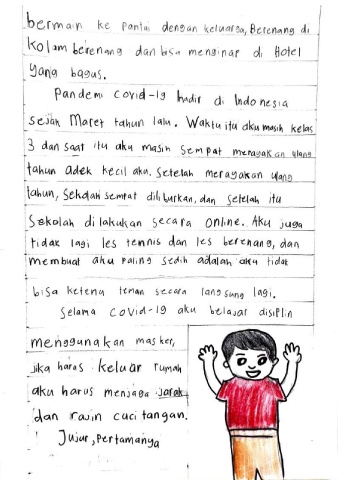 bermain ke pantai dengan keluarga, Berenang di
kolam berenang dan bisa menginap di Hotel
yang bagus.
Pandemi covid-19 hadir di Indonesia
sejak Maret tahun lalu. Waktu itu aku masih kelas
3 dan saat itu aku masih sempat merayakan ulang
tahun adek kecil aku. Setelah merayakan ulang
tahun, Sekolah sempat diliburkan, dan setelah itu
Sekolah dilakukan secara online. Aku juga
tidak lagi les tennis dan les berenang, dan
membuat aku paling sedih adalah aku tidak
bisa ketemu teman secara langsung lagi.
Selama covid-19 aku belajar disiplin
menggunakan masker,
jika harus keluar rumah
aku harus menjaga jarak
dan rajin cuci tangan.
Jujur, Pertamanya